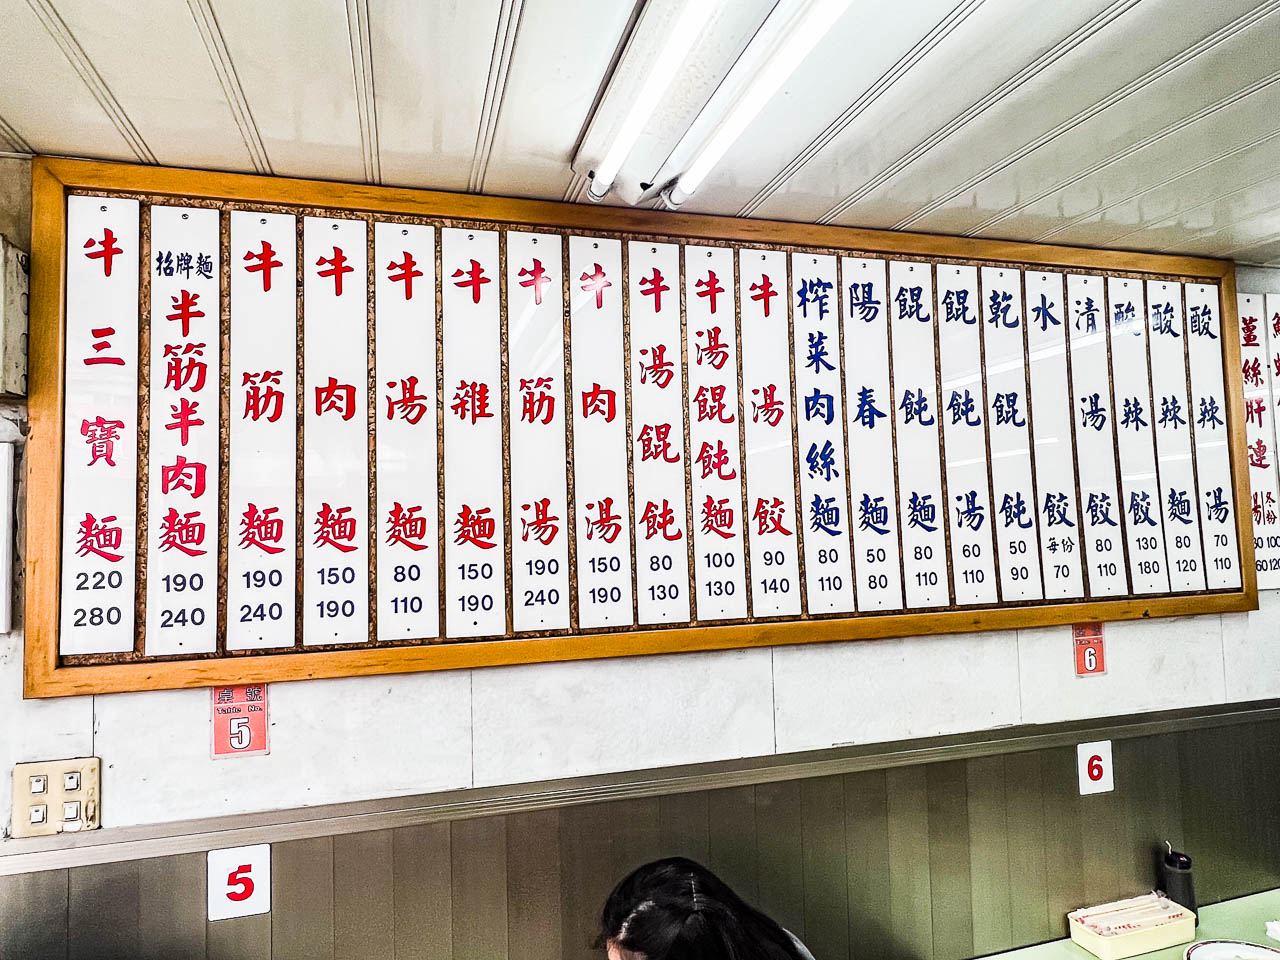 牛三寶麵
220
280
招牌麵
半筋半肉麵
190
240
牛筋麵
190
240
牛肉麵
150
190
牛湯麵
80
110
牛雜麵
150
190
牛筋湯
190
240
牛肉湯
150
190
牛湯餛飩
80
130
牛湯餛飩麵
100
130
牛湯餃
90
140
榨菜肉絲麵
80
110
陽春麵
50
80
餛飩麵
80
110
餛飩湯
60
110
乾餛飩
50
90
水餃
每份
70
清湯餃
80
110
酸辣餃
130
180
酸辣麵
80
120
酸辣湯
70
110
薑絲肝連湯
桌號
Table No.
5
6
5
6